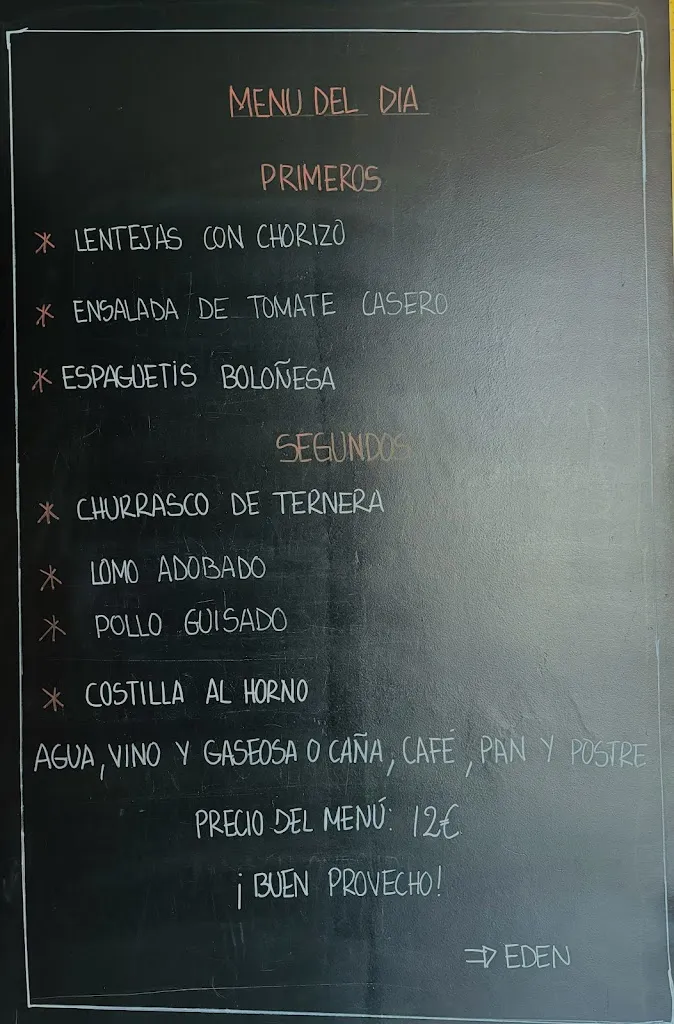 MENU DEL DIA
PRIMEROS
* LENTEJAS CON CHORIZO
* ENSALADA DE TOMATE CASERO
* ESPAGUETIS BOLOÑESA
SEGUNDOS
* CHURRASCO DE TERNERA
* LOMO ADOBADO
* POLLO GUISADO
* COSTILLA AL HORNO
AGUA, VINO Y GASEOSA O CAÑA, CAFÉ, PAN Y POSTRE
PRECIO DEL MENÚ: 12€
¡BUEN PROVECHO!
⇒ EDEN